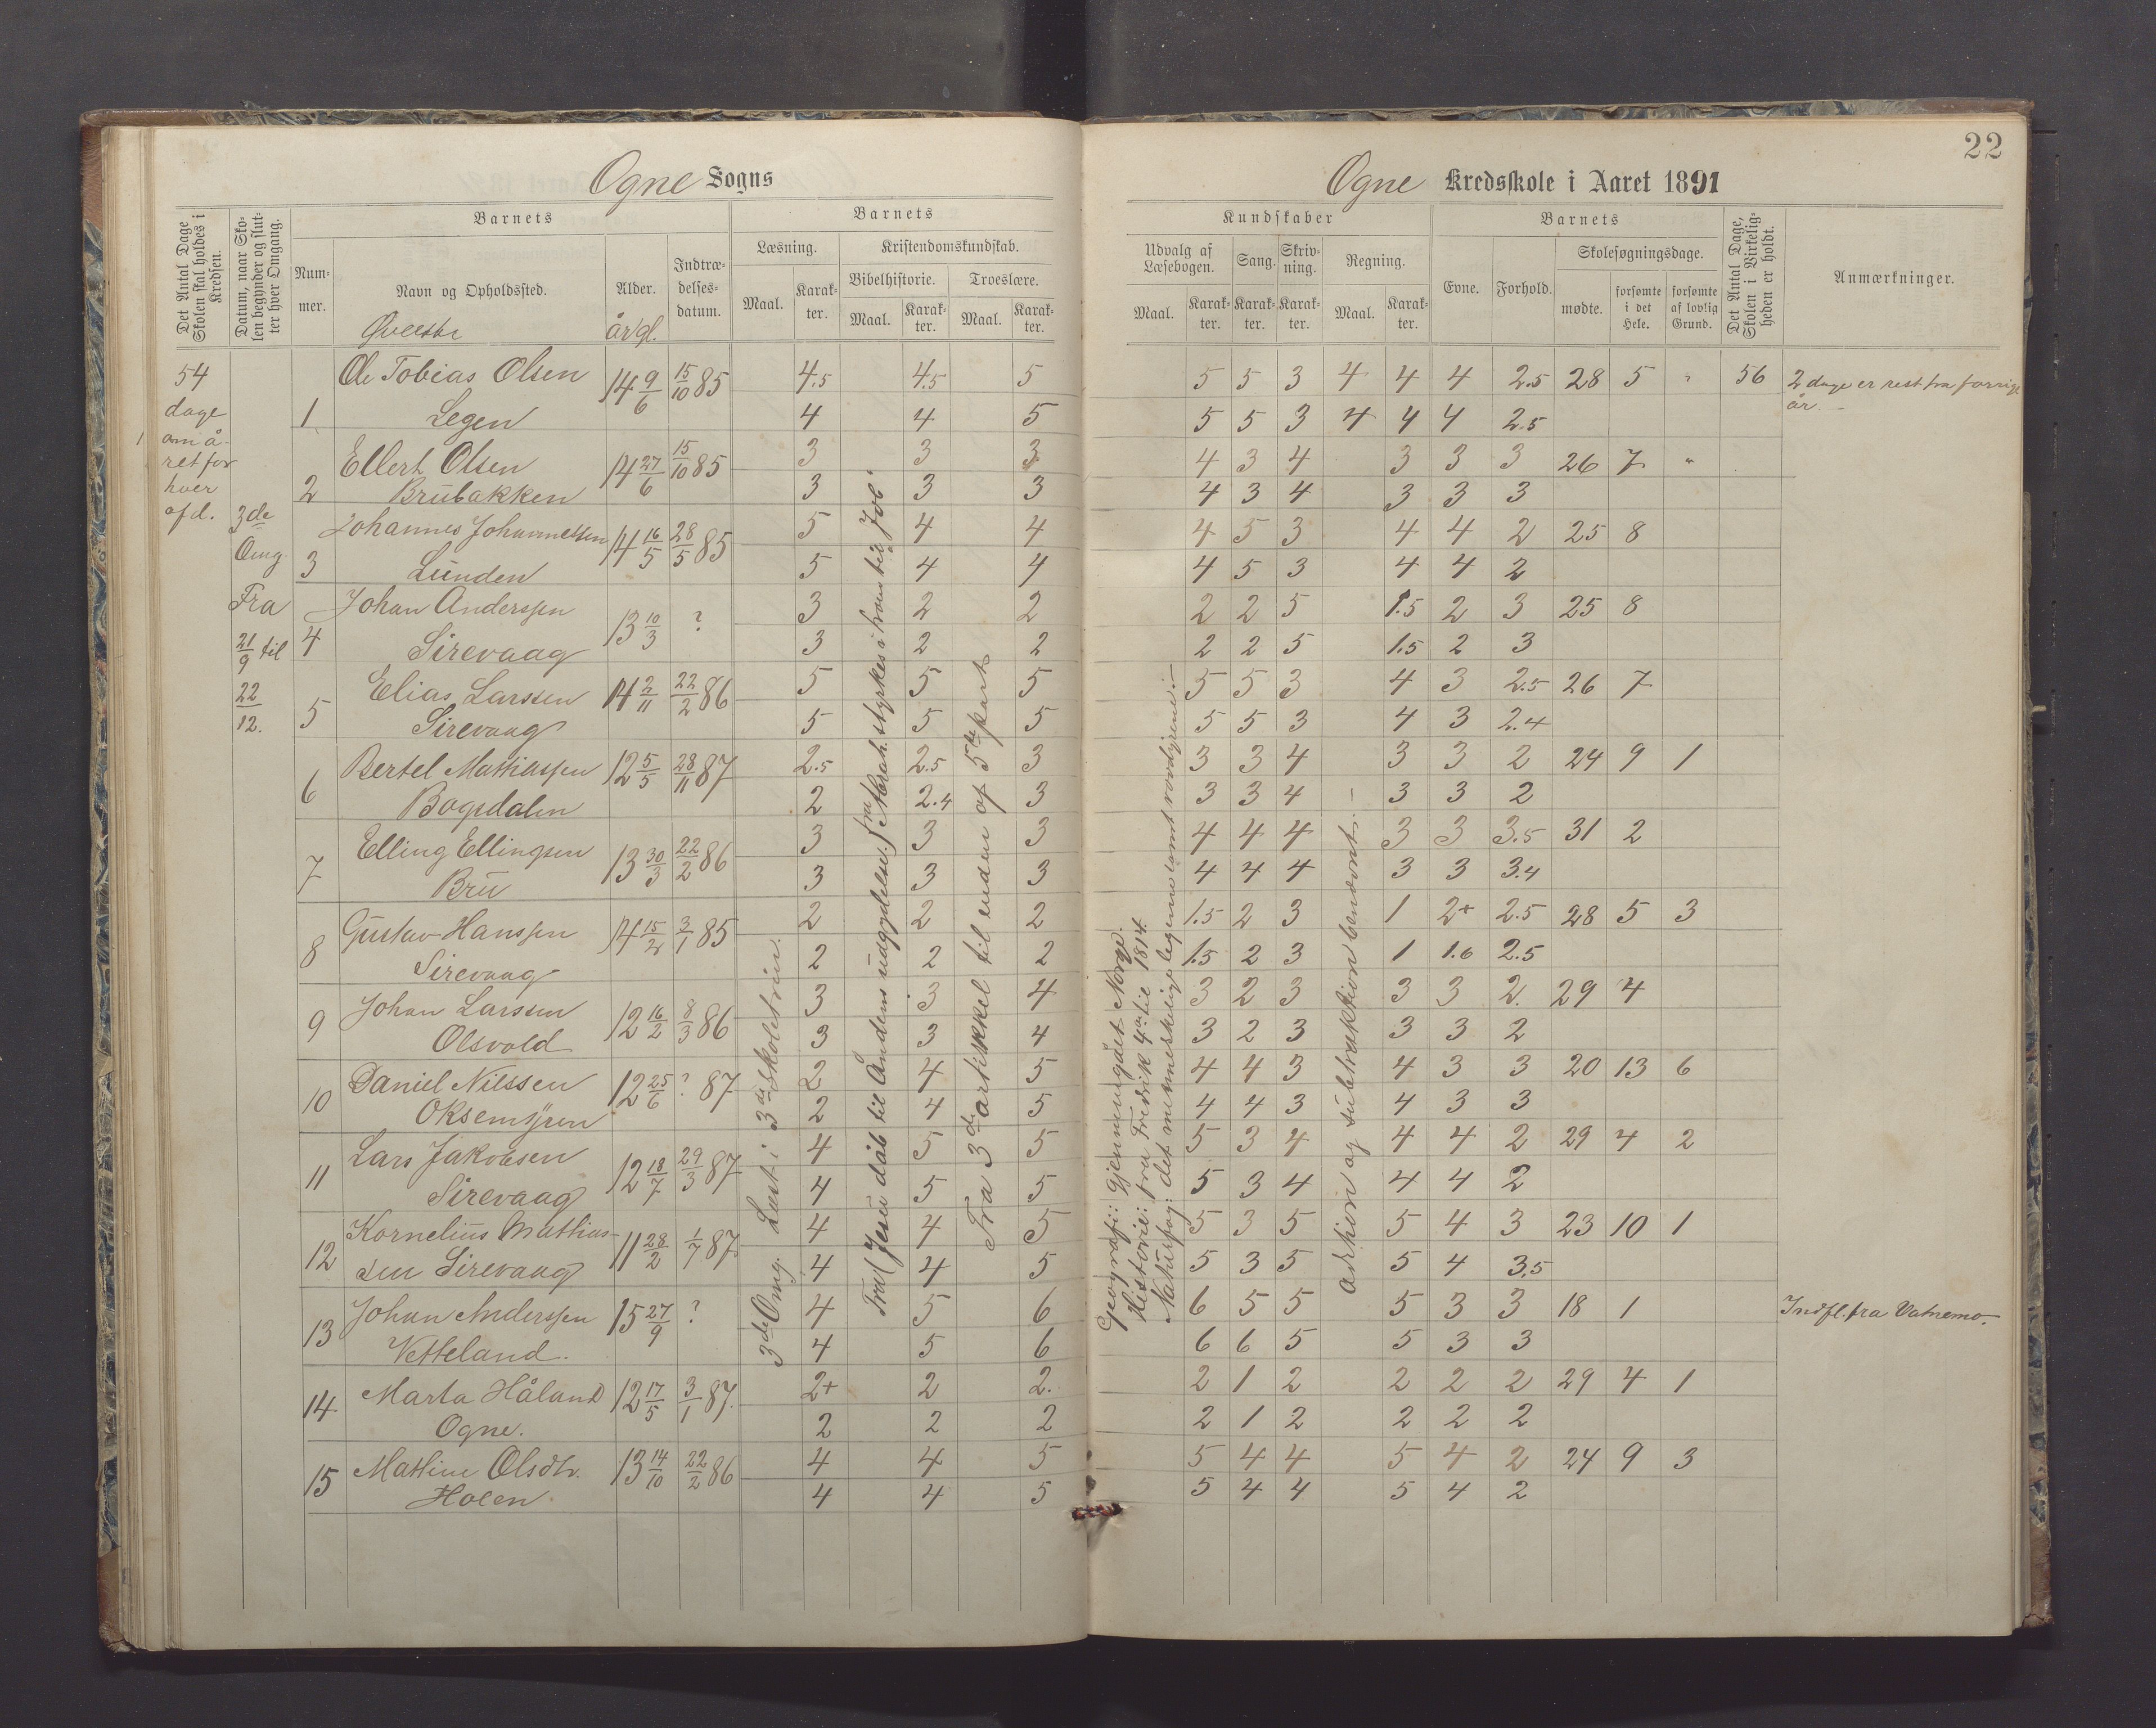 Ogne Sogns
Det Antal Dage Skolen skal holdes i Kredsen.
Datum, naar Skolen begynder og slutter hver Omgang.
Barnets
Nummer.
Navn og Opholdssted.
Øverste
Alder.
år/gl.
Indtrædelsesdatum.
Barnets
Læsning.
Kristendomskundskab.
Bibelhistorie.
Troeslære.
Maal. Karakter. Maal. Karakter. Maal. Karakter.
54
dage
om å-
ret for
hver
afd.
3de
Omg.
Fra
21/9 til
22/12.
1 Ole Tobias Olsen 14 9/6 15/10 85 4.5 4.5 5
Legen 4 4 5
2 Ellert Olsen 14 27/6 15/10 85 3 3 3
Brubakken 3 3 3
3 Johannes Johannessen 14 16/5 28/5 85 5 4 4
Lunden 5 4 4
4 Johan Anderssen 13 10/3 ? 3 2 2
Sirevaag 3 2 2
5 Elias Larssen 14 2/11 22/2 86 5 5 5
Sirevaag 5 5 5
6 Bertel Mattiassen 12 5/5 28/11 87 2.5 2.5 3
Bogsdalen 2 2.4 3
7 Elling Ellingsen 13 30/3 22/2 86 3 3 3
Bru 3 3 3
8 Gustav Hanssen 14 15/2 3/1 85 2 2 2
Sirevaag 2 2 2
9 Johan Larssen 12 16/2 8/3 86 3 3 4
Olsvold 3 3 4
10 Daniel Nilssen 12 25/6 ? 87 2 4 5
2 4 5
11 Lars Jakobsen 12 18/7 29/3 87 4 5 5
Sirevaag 4 5 5
12 Kornelius Mathias- 11 28/2 1/7 87 4 4 5
sen Sirevaag 4 4 5
13 Johan Anderssen 15 27/9 ? 4 5 6
Vetteland. 4 5 6
14. Marta Håland 12 17/5 3/1 87. 2+ 2 2.
Ogne. 2 2 2
15 Mathine Olsdtr. 13 14/10 22/2 86 4 4 5
Holen. 4 4 5
3de Omg. Læst i 3de skoletrin.
Fra Jesu dåb til Åndens udgydelse. fra Abrah. styrkes i troen til Job
Fra 3de artikkel til enden af 5te part
22
Ogne Kredsskole i Aaret 1891
Kundskaber
Udvalg af Læsebogen.
Sang.
Skrivning.
Regning.
Maal. Karakter. Karakter. Karakter. Maal. Karakter.
Barnets
Evne. Forhold.
Skolesøgningsdage.
mødte. forsømte i det Hele. forsømte af lovlig Grund.
Det Antal Dage, Skolen i Virkeligheden er holdt.
Anmærkninger.
5 5 3 4 4 4 2.5 28 5 " 56 2 dage er rest fra forrige
år.
5 5 3 4 4 4 2.5
4 3 4 3 3 3 26 7 "
4 3 4 3 3 3
4 5 3 4 4 2 25 8
4 5 3 4 4 2
2 2 5 1.5 2 3 25 8
2 2 5 1.5 2 3
5 5 3 4 3 2.5 26 7
5 5 3 4 3 2.4
3 3 4 3 3 2 24 9 1
3 3 4 3 3 2
4 4 4 3 3 3.5 31 2
4 4 4 3 3 3.4
1.5 2 3 1 2+ 2.5 28 5 3
1.5 2 3 1 1.6 2.5
3 2 3 3 3 2. 29 4
3 2 3 3 3 2
4 4 3 4 3 3 20 13 6
4 4 3 4 3 3
5 3 4 4 4 2 29 4 2
5 3 4 4 4 2
5 3 5 5 4 3 23 10 1
5 3 5 5 4 3.5
6 5 5 5 3 3 18 1 Indfl. fra Vatnemo.
6 6 5 5 3 3
2 1 2 2 2 2 29 4 1
2 1 2 2 2 2
5 4 4 5 4 2 24 9 3
5 4 4 5 4 2
Geografi: gjennemgået Norge.
Historie: fra Fredrik 4de til 1814.
Naturfag: det menneskelige legeme samt rovdyrene.
Addition og subtraktion benævnt.